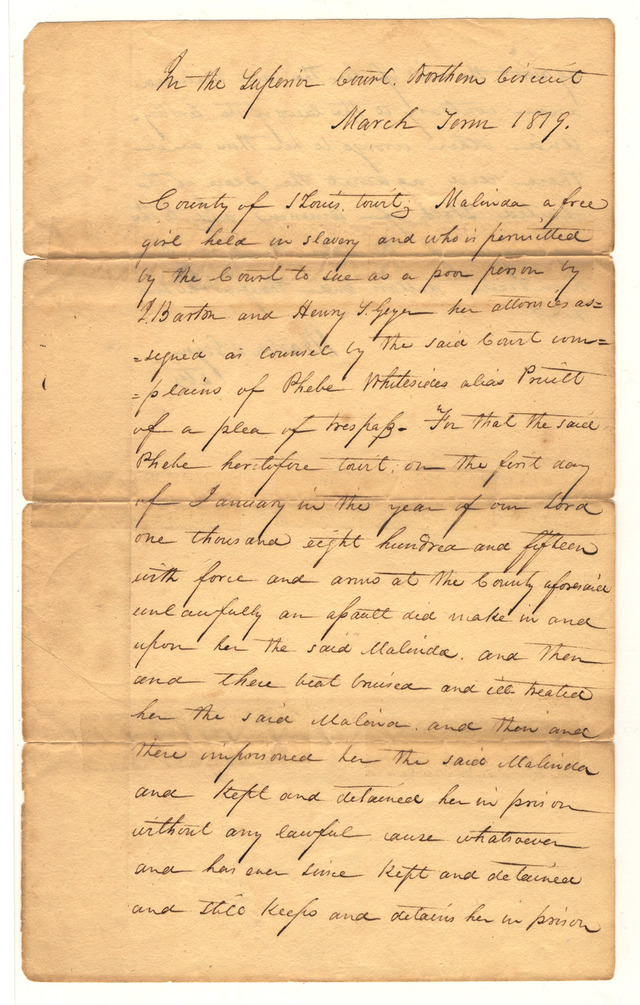 In the Superior Court. Northern Circuit
March Term 1819.
County of St Louis. towit; Malinda a free
girl held in slavery and who is permitted
by the Court to sue as a poor person by
D. Barton and Henry S. Geyer her attornies as=
=signed as counsel by the said Court com=
=plains of Phebe Whitesides alias Pruitt
of a plea of trespass - "For that the said
Phebe heretofore towit; on the first day
of January in the year of our Lord
one thousand eight hundred and fifteen
with force and arms at the County aforesaid
unlawfully an assault did make in and
upon her the said Malinda. and then
and there beat bruised and ill treated
her the said Malinda. and then and
there imprisoned her the said Malinda
and kept and detained her in prison
without any lawful cause whatsoever
and has ever since kept and detained
and still keeps and detains her in prison